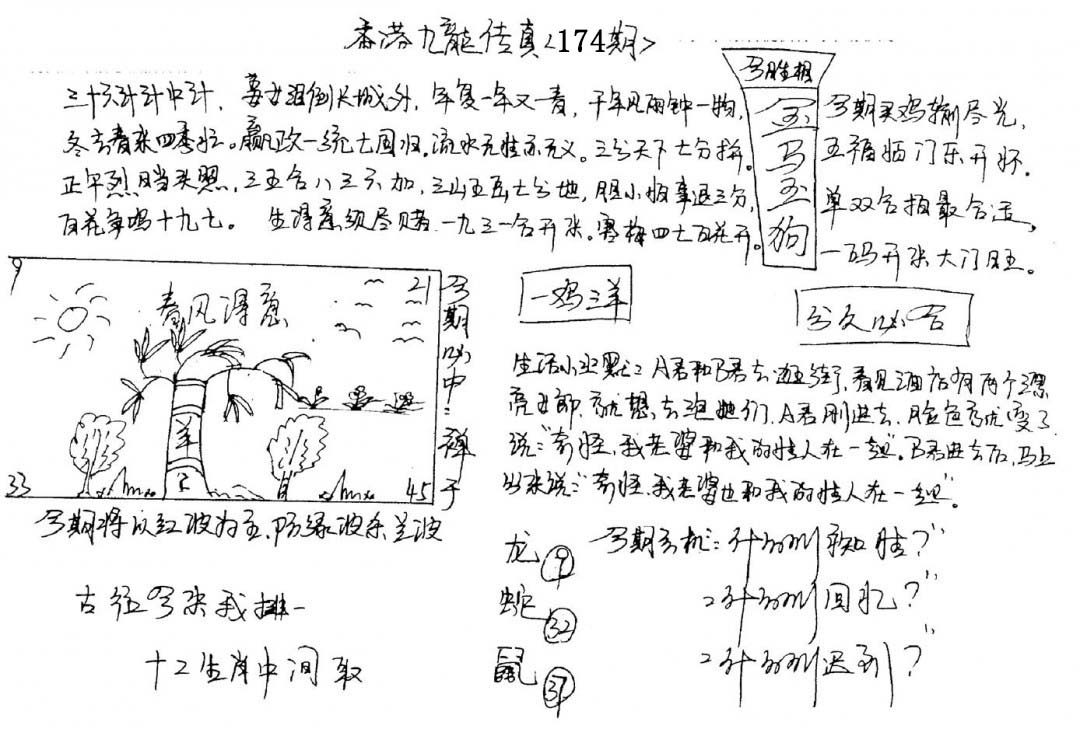 香港九龍传真<174期>
三十六计计中计，姜女泪倒长城外，年复一年又一春，千年风雨钟一物，
冬去春来四季忙。嬴政一统七国归，流水无情亦无义。三分天下七分拼。
正午烈日当头照，三五合八三六加，三山五岳七分地，胆小怕事退三分，
百花争鸣十九七。生得意须尽赌一九三一合开来。寒梅四七百花开。
今期买鸡输尽光，
五福临门乐开怀。
单双合拍最合适，
一码开来大门旺。
金马玉狗
9
21
春风得意
羊
?
33
45
今期必中：禅子
一鸡三羊
今期将以红波为主，防绿波杀兰波
生活小幽默：A君和B君去逛街，看见酒店有两个漂
亮女郎，就想去泡她们，A君刚进去，脸色就变了
说：“奇怪，我老婆和我的情人在一起”。B君进去后，马上
出来说：“奇怪，我老婆也和我的情人在一起”。
龙 9
蛇 32
鼠 37
今期玄机：
回忆？”
迟到？
古径今来我排一
十二生肖中间取